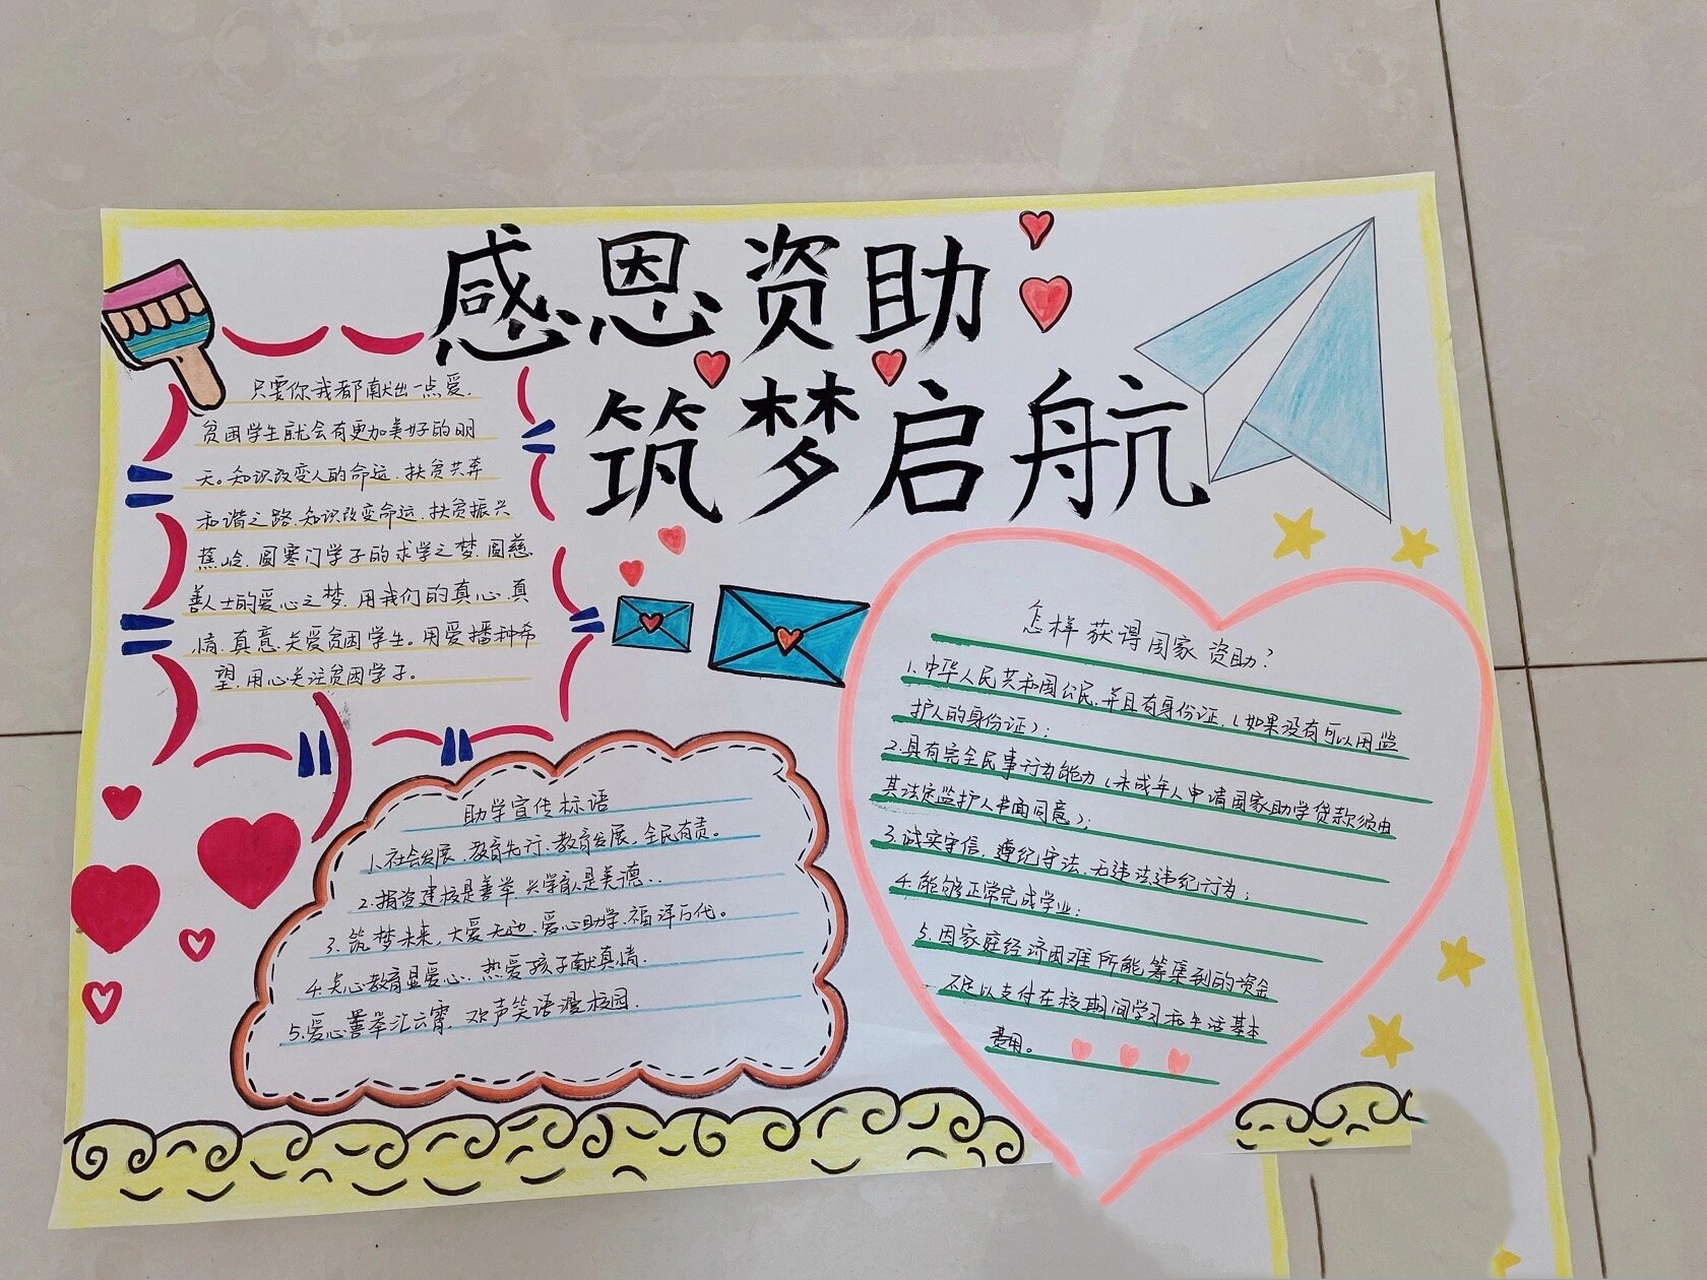 感恩资助
筑梦启航
只要你我都献出一点爱.
贫困学生就会有更加美好的明
天。知识改变人的命运.扶贫共奔
和谐之路.知识改变命运.扶贫振兴
蕉岭.圆寒门学子的求学之梦.圆慈
善人士的爱心之梦.用我们的真心.真
情.真意.关爱贫困学生。用爱播种希
望.用心关注贫困学子。
助学宣传标语
1.社会发展.教育先行.教育发展.全民有责。
2.捐资建校是善举.兴学育人是美德..
3.筑梦未来,大爱无边.爱心助学.福泽万代。
4.关心教育显爱心.热爱孩子献真情.
5.爱心善举汇云霄.欢声笑语漫校园.
怎样获得国家资助?
1.中华人民共和国公民.并且有身份证.(如果没有可以用监
护人的身份证);
2.具有完全民事行为能力(未成年人申请国家助学贷款须由
其法定监护人书面同意);
3.诚实守信.遵纪守法.无违法违纪行为;
4.能够正常完成学业;
5.因家庭经济困难所能筹集到的资金
不足以支付在校期间学习和生活基本
费用。